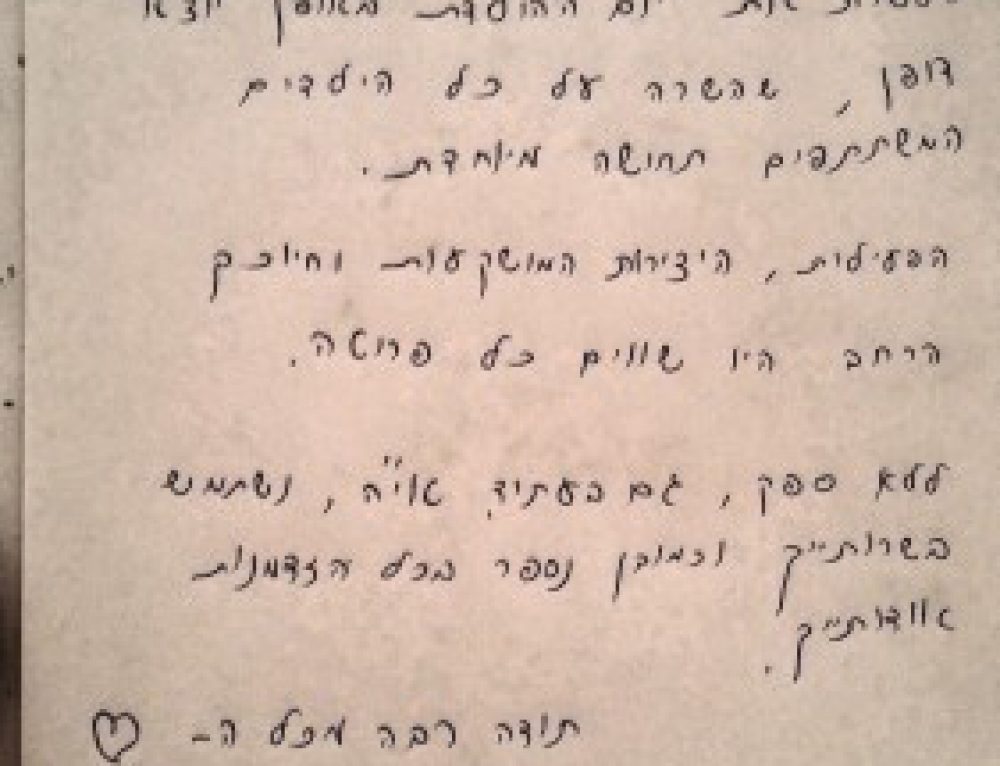 לעשות את יום ההולדת באופן יוצא
דופן, שהשרה על כל הילדים
המשתתפים תחושה מיוחדת.
הפעילות, היצירות המושקעות וחיוכך
הרחב היו שווים כל פרוטה.
ללא ספק, גם בעתיד אי"ה, נשתמש
בשרותייך וכמובן נספר בכל הזדמנות
אודותייך.
תודה רבה מכל ה- ♡